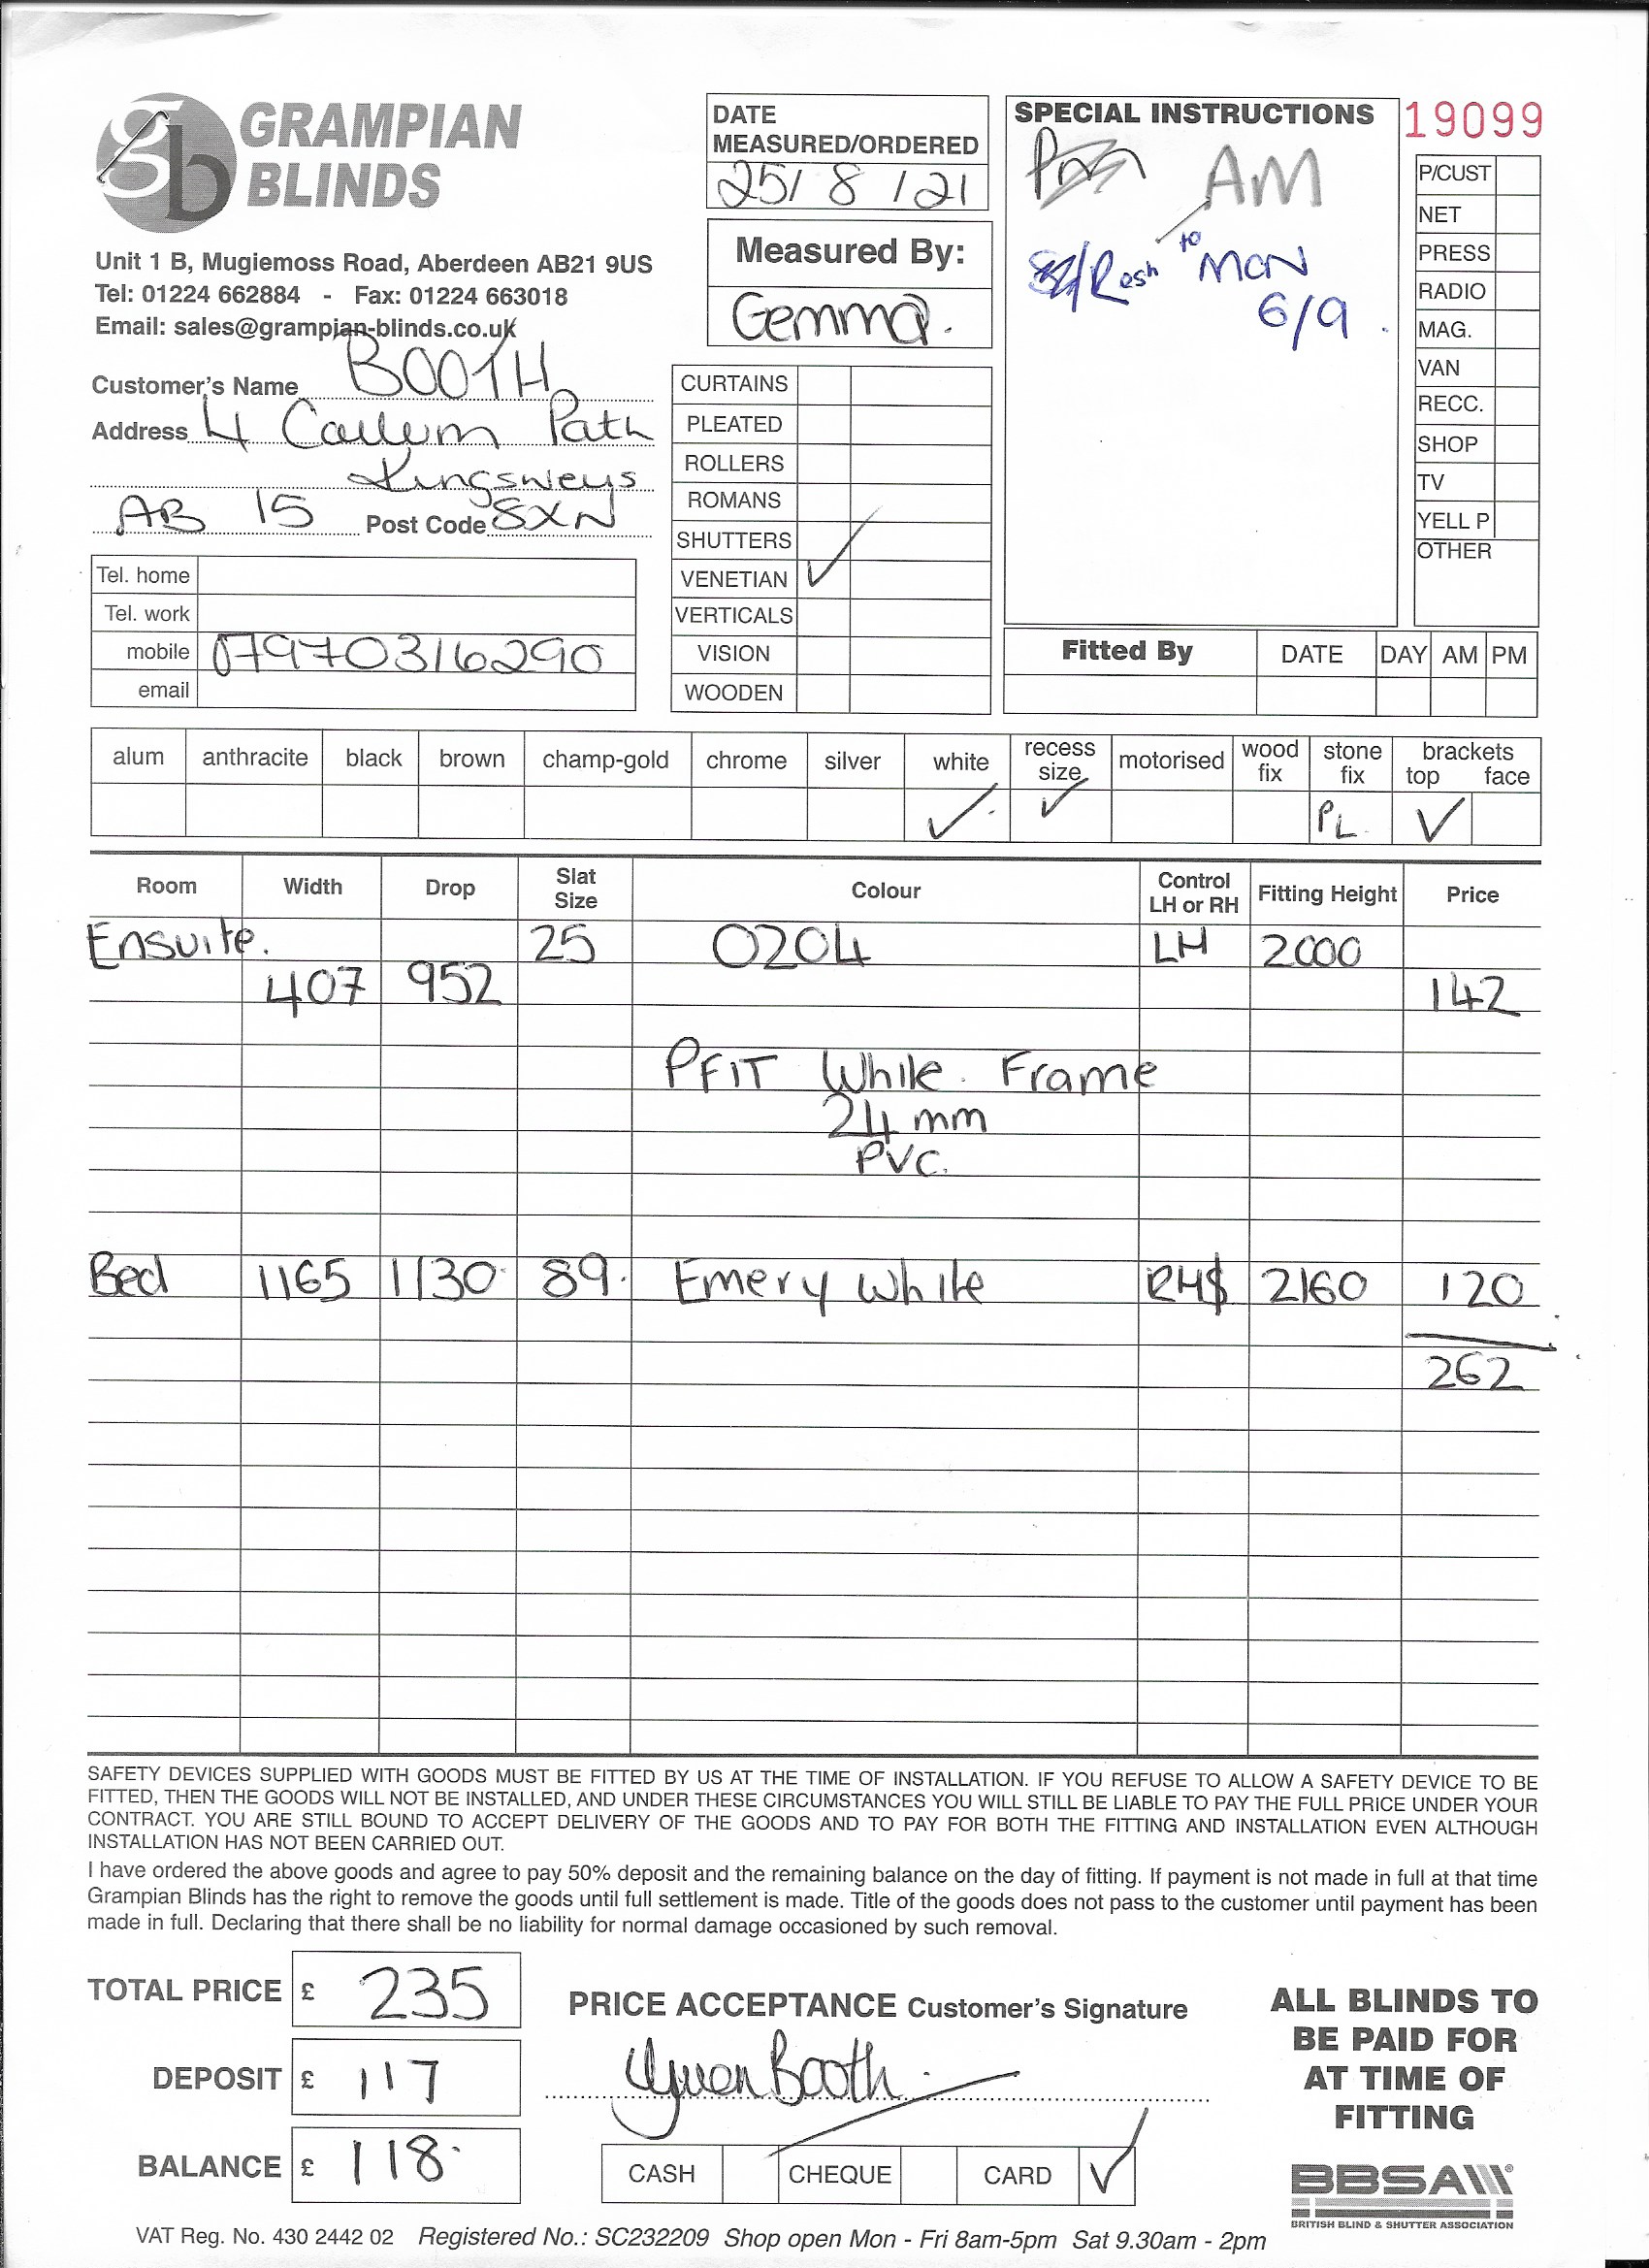 gb GRAMPIAN
BLINDS
Unit 1 B, Mugiemoss Road, Aberdeen AB21 9US
Tel: 01224 662884 - Fax: 01224 663018
Email: sales@grampian-blinds.co.uk
Customer's Name BOOTH
Address 4 Callum Path
Kingswells
AB 15 Post Code 8XN
Tel. home
Tel. work
mobile 07970316290
email
DATE
MEASURED/ORDERED
25/ 8 / 21
Measured By:
Gemma.
CURTAINS
PLEATED
ROLLERS
ROMANS
SHUTTERS
VENETIAN ✓
VERTICALS
VISION
WOODEN
SPECIAL INSTRUCTIONS
AM
Resh to MON
6/9
19099
P/CUST
NET
PRESS
RADIO
MAG.
VAN
RECC.
SHOP
TV
YELL P
OTHER
Fitted By DATE DAY AM PM
alum anthracite black brown champ-gold chrome silver white recess size motorised wood fix stone fix brackets top face
✓ ✓ PL ✓
Room Width Drop Slat Size Colour Control LH or RH Fitting Height Price
Ensuite. 25 0204 LH 2000
407 952 142
PFIT White Frame
24mm
PVC.
Bed 1165 1130 89 Emery White RH$ 2160 120
262
SAFETY DEVICES SUPPLIED WITH GOODS MUST BE FITTED BY US AT THE TIME OF INSTALLATION. IF YOU REFUSE TO ALLOW A SAFETY DEVICE TO BE
FITTED, THEN THE GOODS WILL NOT BE INSTALLED, AND UNDER THESE CIRCUMSTANCES YOU WILL STILL BE LIABLE TO PAY THE FULL PRICE UNDER YOUR
CONTRACT. YOU ARE STILL BOUND TO ACCEPT DELIVERY OF THE GOODS AND TO PAY FOR BOTH THE FITTING AND INSTALLATION EVEN ALTHOUGH
INSTALLATION HAS NOT BEEN CARRIED OUT.
I have ordered the above goods and agree to pay 50% deposit and the remaining balance on the day of fitting. If payment is not made in full at that time
Grampian Blinds has the right to remove the goods until full settlement is made. Title of the goods does not pass to the customer until payment has been
made in full. Declaring that there shall be no liability for normal damage occasioned by such removal.
TOTAL PRICE £ 235
DEPOSIT £ 117
BALANCE £ 118
PRICE ACCEPTANCE Customer's Signature
Gwen Booth
CASH CHEQUE CARD ✓
ALL BLINDS TO
BE PAID FOR
AT TIME OF
FITTING
BBSA
BRITISH BLIND & SHUTTER ASSOCIATION
VAT Reg. No. 430 2442 02 Registered No.: SC232209 Shop open Mon - Fri 8am-5pm Sat 9.30am - 2pm